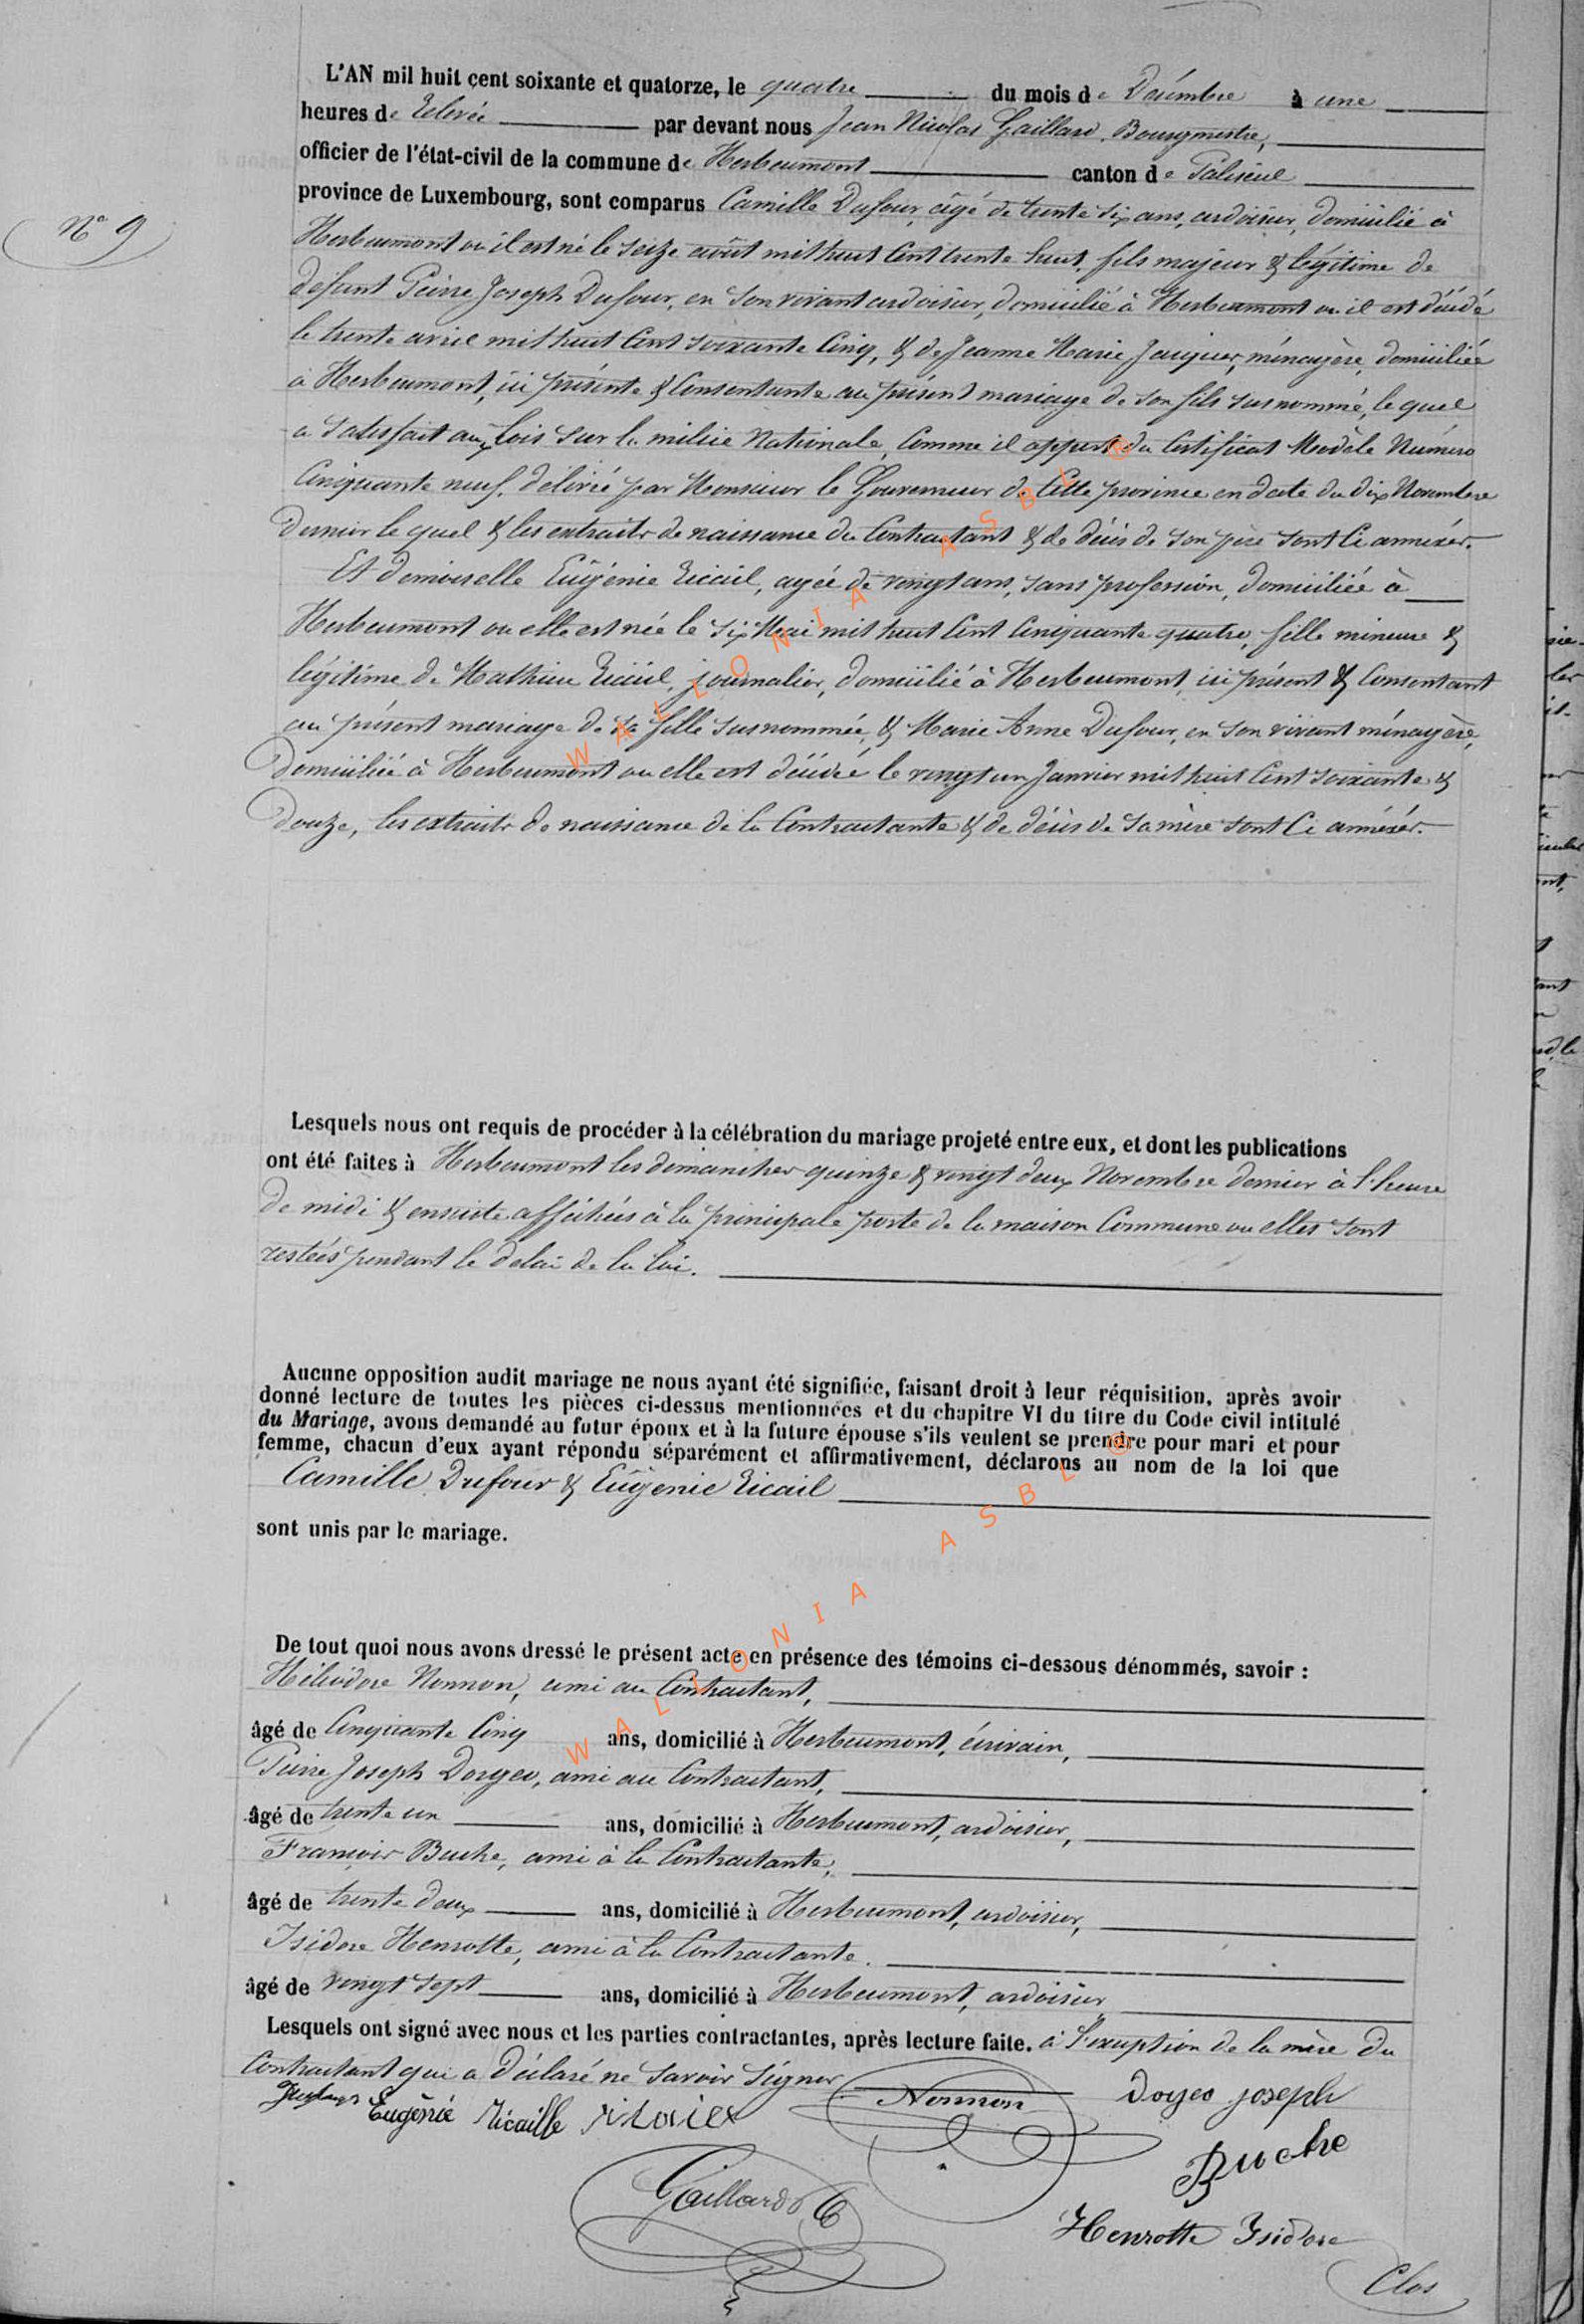 L'AN mil huit cent soixante et quatorze, le quatre du mois de Décembre à une
heures de Relevée par devant nous Jean Nicolas Gaillard, Bourgmestre,
officier de l'état-civil de la commune de Herbeumont canton de Paliseul
N° 9
province de Luxembourg, sont comparus Camille Dufour, âgé de trente six ans, ardoisier, domicilié à
Herbeumont ou il est né le seize août mil huit Cent trente huit, fils majeur & légitime de
défunt Pierre Joseph Dufour, en son vivant ardoisier, domicilié à Herbeumont ou il est décédé
le trente avril mil huit Cent soixante Cinq, & de Jeanne Marie ménagère, domiciliée
à Herbeumont, ici présente & Consentante au présent mariage de son fils susnommé, le quel
a satisfait aux Lois sur la milice Nationale, Comme il appert du Certificat Modèle Numéro
Cinquante neuf, délivré par Monsieur le Gouverneur de Cette province en date du dix Novembre
dernier le quel & les extraits de naissance du Contractant & de décès de son père sont Ci annexés.
Et demoiselle Eugénie Ricail, agée de vingt ans, sans profession, domiciliée à
Herbeumont ou elle est née le six Mai mil huit Cent Cinquante quatre, fille mineure &
légitime de Mathieu Ricail, journalier, domicilié à Herbeumont, ici présent & Consentant
au présent mariage de sa fille susnommée, & Marie Anne Dufour, en son vivant ménagère,
domiciliée à Herbeumont ou elle est décédée le vingt un Janvier mil huit Cent soixante &
douze, les extraits de naissance de la Contractante & de décès de sa mère sont Ci annexés.
Lesquels nous ont requis de procéder à la célébration du mariage projeté entre eux, et dont les publications
ont été faites à Herbeumont les dimanches quinze & vingt deux Novembre dernier à l'heure
de midi & ensuite affichées à la principale porte de la maison Commune ou elles sont
restées pendant le délai de la loi.
Aucune opposition audit mariage ne nous ayant été signifiée, faisant droit à leur réquisition, après avoir
donné lecture de toutes les pièces ci-dessus mentionnées et du chapitre VI du titre du Code civil intitulé
du Mariage, avons demandé au futur époux et à la future épouse s'ils veulent se prendre pour mari et pour
femme, chacun d'eux ayant répondu séparément et affirmativement, déclarons au nom de la loi que
Camille Dufour & Eugénie Ricail
sont unis par le mariage.
De tout quoi nous avons dressé le présent acte en présence des témoins ci-dessous dénommés, savoir :
Héliodore Nonnon, ami au Contractant,
âgé de Cinquante Cinq ans, domicilié à Herbeumont, écrivain,
Pierre Joseph Doryeo, ami au Contractant,
âgé de trente un ans, domicilié à Herbeumont, ardoisier,
François Buche, ami à la Contractante,
âgé de trente deux ans, domicilié à Herbeumont, ardoisier,
Isidore Henrotte, ami à la Contractante.
âgé de vingt sept ans, domicilié à Herbeumont, ardoisier
Lesquels ont signé avec nous et les parties contractantes, après lecture faite. à l'exception de la mère du
Contractant qui a déclaré ne savoir signer
Eugénie Ricaille Nonnon Doryeo joseph
Buche
Gaillard
Henrotte Isidore
Clos
WALLONIA ASBL ©
WALLONIA ASBL ©